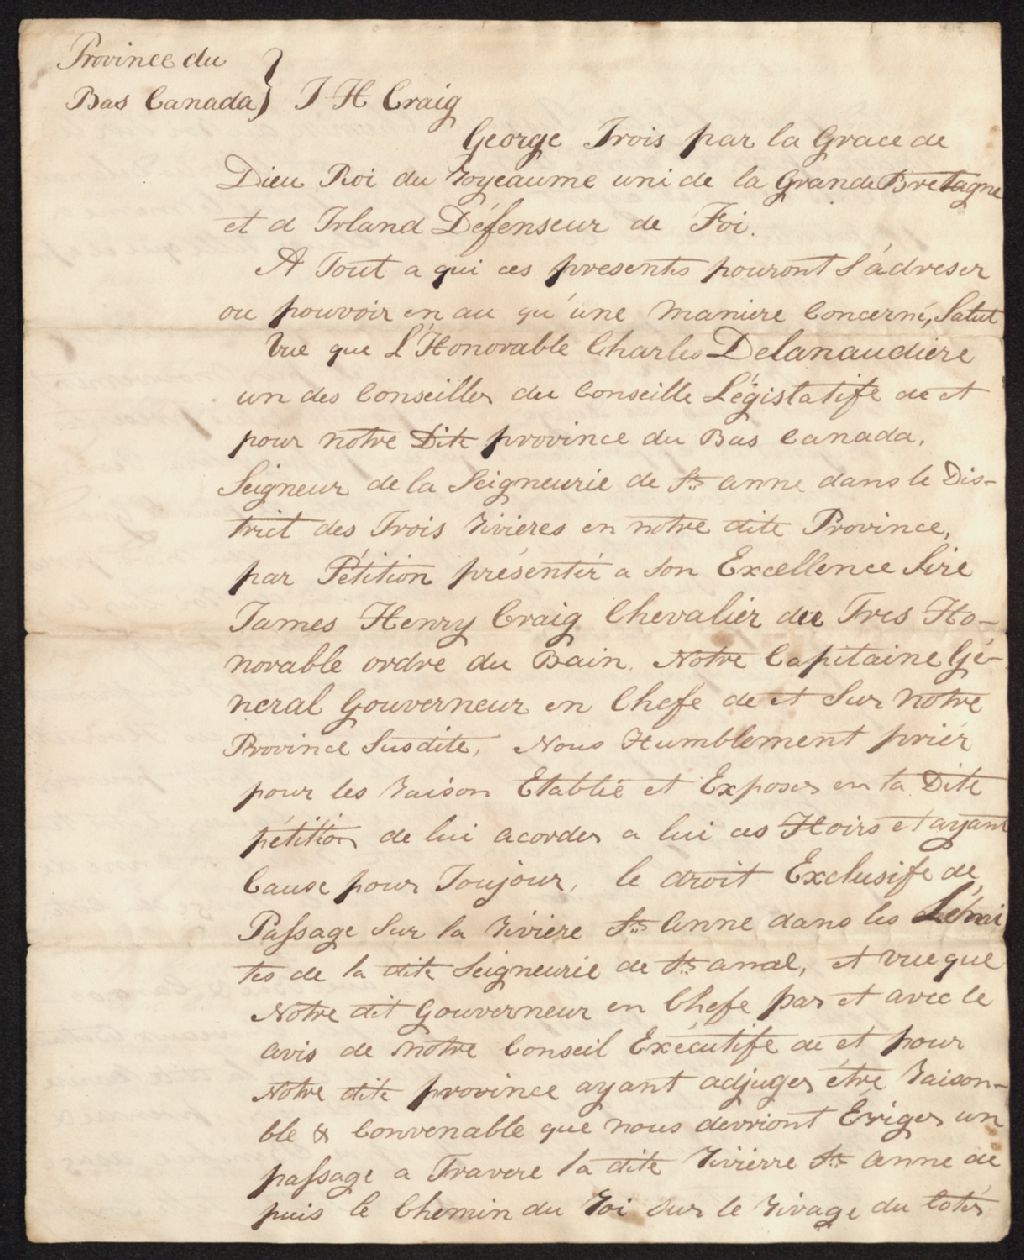 Province du
Bas Canada } J H Craig
George Trois par la Grace de
Dieu Roi du Royeaume uni de la Grande Bretagne
et d Irland Défenseur de Foi.
A Tout a qui ces presents pouront S'adreser
ou pouvoir en au qu'une maniere Concerné, Salut
Vue que L'Honorable Charles Delanaudiere
un des Conseiller du Conseille Législatife de et
pour notre Dite province du Bas Canada,
Seigneur de la Seigneurie de Ste anne dans le Dis-
trict des Trois Rivieres en notre dite Province,
par Pétition présenter a Son Excellence Sire
James Henry Craig Chevalier du Tres Ho-
norable ordre du Bain. Notre Capitaine Gé-
neral Gouverneur en Chefe de et Sur notre
Province Susdite, Nous Humblement priér
pour les Raison Etablie et Exposer en la Dite
pétition de lui acorder a lui ces Hoirs et ayant
Cause pour Toujour, le droit Exclusife de
Passage Sur la Riviere Ste Anne dans les Lémi
tes de la dite Seigneurie de Ste anne, et vue que
Notre dit Gouverneur en Chefe par et avec le
avis de notre Conseil Exécutife de et pour
Notre dite province ayant adjuger être Raison-
ble & Convenable que nous devriont Ériger un
passage a Travere la dite Rivierre Ste Anne de
puis le Chemin du Roi Sur le Rivage du Cotés